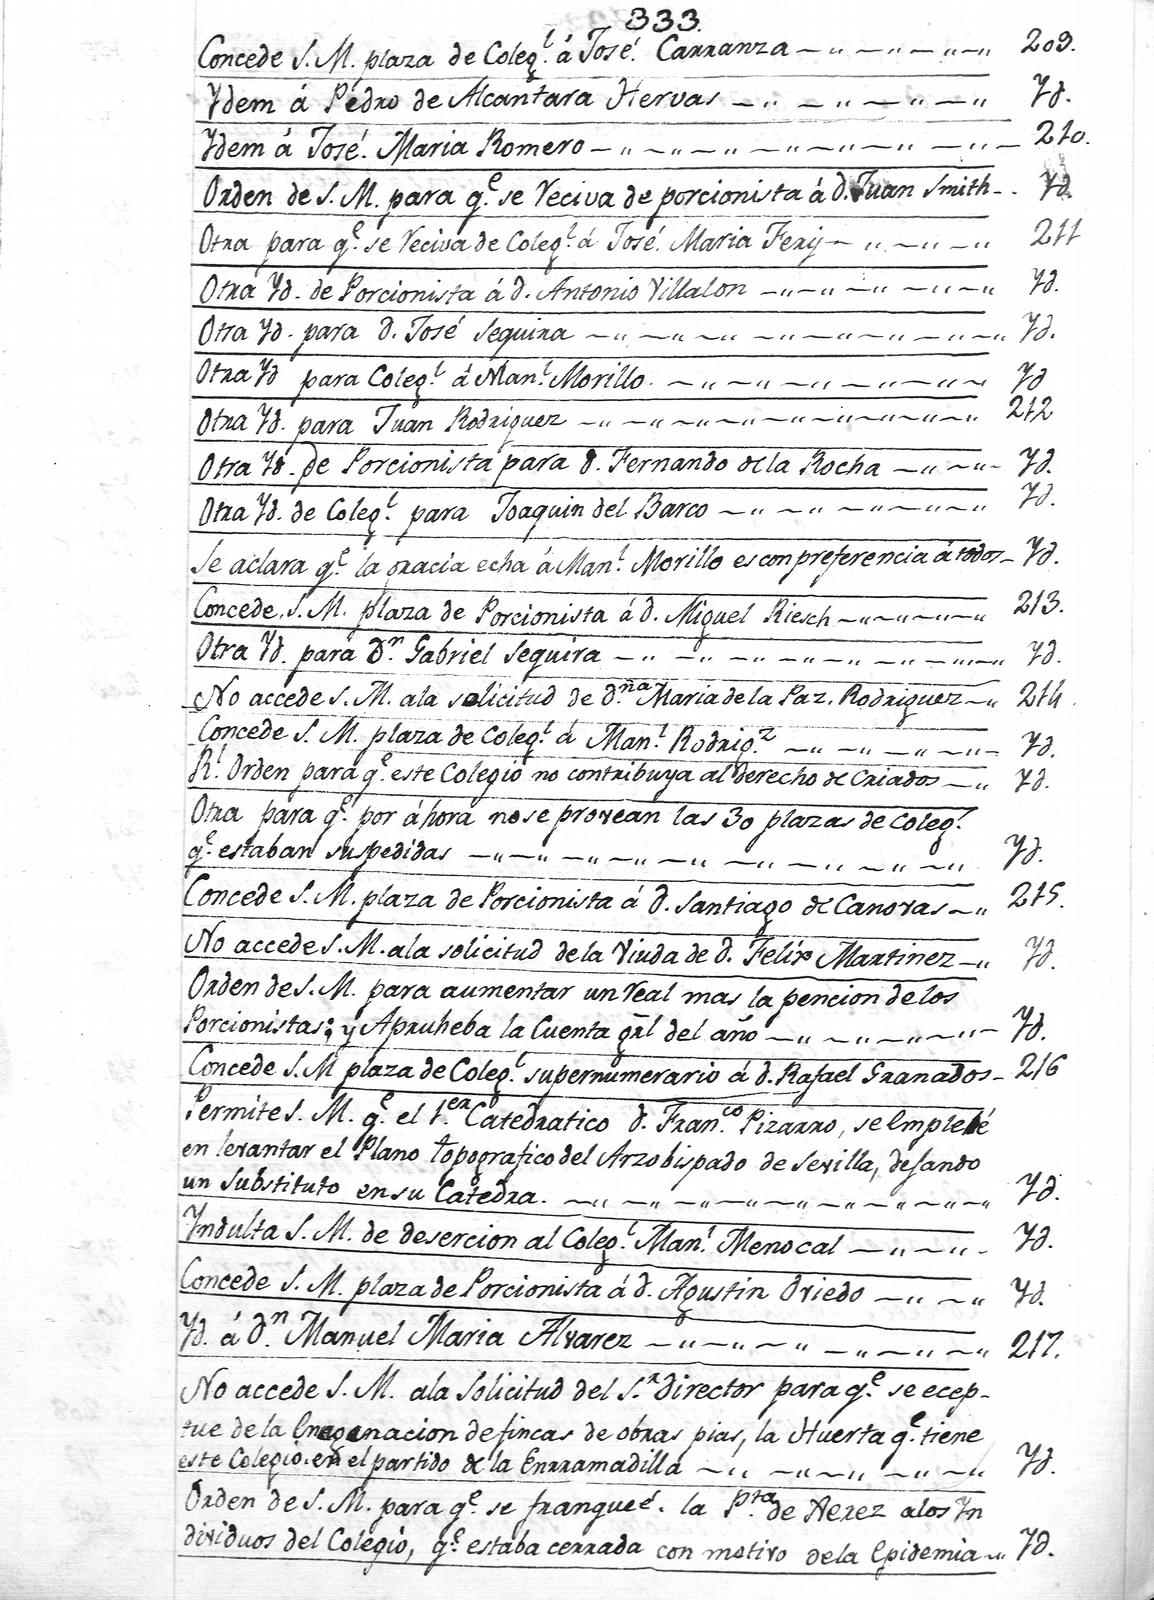 333.
Concede S. M. plaza de Coleg.l á José. Carranza — „ — „ — „ — „ 209.
Ydem á Pedro de Alcantara Hervas — „ — „ — „ — „ Yd.
Ydem á José. Maria Romero — „ — „ — „ — „ — „ — „ — 210.
Orden de S. M. para q.e se reciva de porcionista á d. Juan Smith - . Yd
Otra para q.e se reciva de Coleg.l á José. Maria Fery — „ — „ — „ 211
Otra Yd. de Porcionista á d. Antonio Villalon — „ — „ — „ — „ Yd.
Otra Yd. para d. José Sequira — „ — „ — „ — „ — „ — „ Yd.
Otra Yd para Coleg.l á Man.l Morillo. — „ — „ — „ — „ — „ Yd
Otra Yd. para Juan Rodriguez — „ — „ — „ — „ — „ — „ 212
Otra Yd. de Porcionista para d. Fernando de la Rocha — „ — „ — Yd.
Otra Yd. de Coleg.l para Joaquin del Barco — „ — „ — „ — „ Yd.
Se aclara q.e la gracia echa á Man.l Morillo es con preferencia á todos — Yd.
Concede S. M. plaza de Porcionista á d. Miguel Riesch — „ — „ — „ 213.
Otra Yd. para d.n Gabriel Sequira — „ — „ — „ — „ — „ — „ Yd.
No accede S. M. ala solicitud de d.na Maria de la Paz. Rodriguez — „ 214.
Concede S. M. plaza de Coleg.l á Man.l Rodrig.z — „ — „ — „ — „ — Yd.
R.l Orden para q.e este Colegio no contribuya al derecho de Criados — „ Yd.
Otra para q.e por áhora no se provean las 30 plazas de Coleg.l
q.e estaban suspedidas — „ — „ — „ — „ — „ — „ — „ Yd.
Concede S. M. plaza de Porcionista á d. Santiago de Canovas — „ 215.
No accede S. M. ala solicitud de la Viuda de d. Felix Martinez — „ Yd.
Orden de S. M. para aumentar un real mas la pencion de los
Porcionistas; y Aprueba la Cuenta gral del año — „ — „ — „ — „ — Yd.
Concede S. M plaza de Coleg.l supernumerario á d. Rafael Granados — 216
Permite S. M. q.e el 1.er Catedratico d. Fran.co Pizarro, se Impleé
en levantar el Plano topografico del Arzobispado de Sevilla, dejando
un substituto en su Catedra. — „ — „ — „ — „ — „ — „ Yd.
Yndulta S. M. de desercion al Coleg.l Man.l Menocal — „ — „ — . Yd.
Concede S. M. plaza de Porcionista á d. Agustin Oviedo — „ — „ — „ Yd.
Yd. á d.n Manuel Maria Alvarez — „ — „ — „ — „ — „ — „ 217.
No accede S. M. ala solicitud del S.r director para q.e se ecep-
tue de la Enagenacion de fincas de obras pias, la Huerta q.e tiene
este Colegio en el partido de la Enrramadilla — „ — „ — „ — „ — „ Yd.
Orden de S. M. para q.e se franqueé. la P.ta de Xerez alos Yn
dividuos del Colegio, q.e estaba cerrada con motivo de la Epidemia — „ Yd.